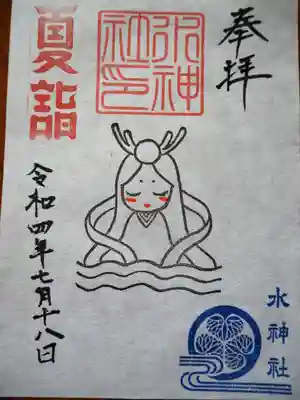 奉拝
水神
社印
夏詣
令和四年七月十八日
水神社